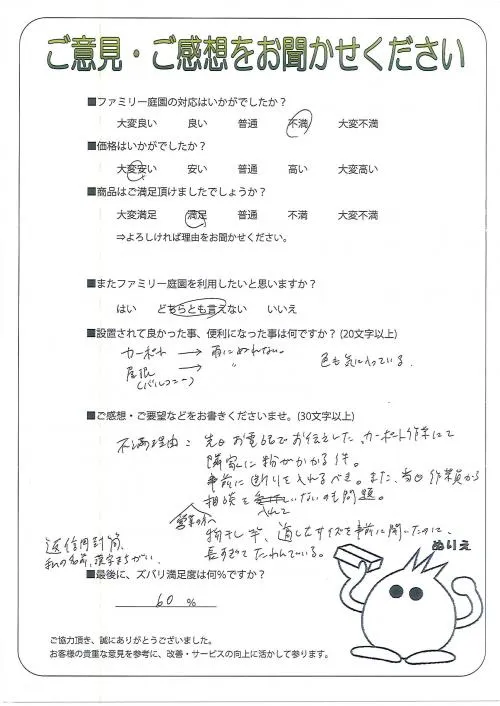 ご意見・ご感想をお聞かせください
■ファミリー庭園の対応はいかがでしたか？
大変良い 良い 普通 不満 大変不満
■価格はいかがでしたか？
大変安い 安い 普通 高い 大変高い
■商品はご満足頂けましたでしょうか？
大変満足 満足 普通 不満 大変不満
⇒よろしければ理由をお聞かせください。
■またファミリー庭園を利用したいと思いますか？
はい どちらとも言えない いいえ
■設置されて良かった事、便利になった事は何ですか？(20文字以上)
カーポート → 雨にぬれない。
屋根 → 〃 色も気に入っている.
(バルコニー)
■ご感想・ご要望などをお書きくださいませ。(30文字以上)
不満理由： 先日お電話でお伝えした、カーポート作業にて
隣家に粉がかかる件。
事前に断りを入れるべき。また、当日作業員から
相談を入れていないのも問題。
営業の方へ
物干し竿、適したサイズを事前に聞いたのに、
長すぎてたわんでいる。
返信用封筒、
私の名前、漢字まちがい。
ぬりえ
■最後に、ズバリ満足度は何%ですか？
60 %
ご協力頂き、誠にありがとうございました。
お客様の貴重な意見を参考に、改善・サービスの向上に活かして参ります。